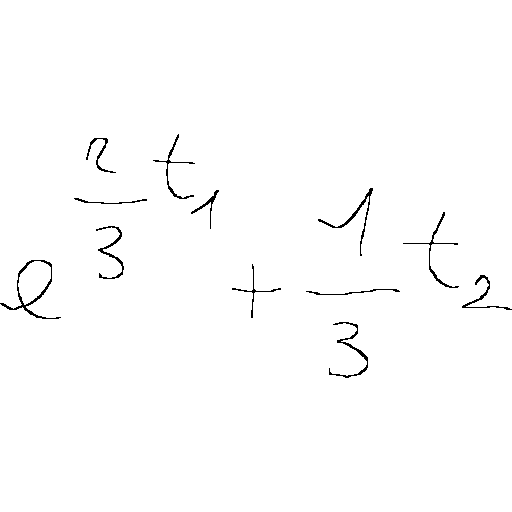 e^{\frac{2}{3}t_1} + \frac{1}{3}t_2